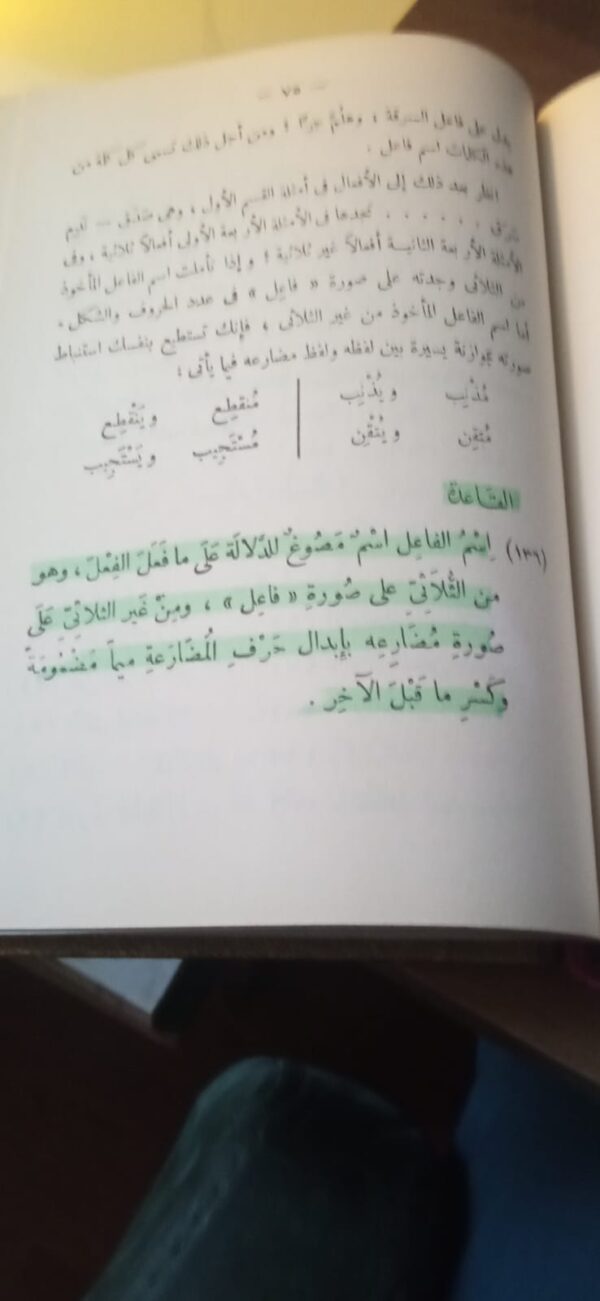 — ٧٥ —
يدل على فاعل السرقة ، وهلم جرا ؛ ومن أجل ذلك تسمى كل كلمة من
هذه الكلمات اسم فاعل .
انظر بعد ذلك إلى الأفعال فى أمثلة القسم الأول ، وهى صَدَق — نَدِم
سرق . . . . . . تجدها فى الأمثلة الأربعة الأولى أفعالًا ثلاثية ، وفى
الأمثلة الأربعة الثانية أفعالًا غير ثلاثية ؛ وإذا تأملت اسم الفاعل المأخوذ
من الثلاثى وجدته على صورة « فاعِل » فى عدد الحروف والشكل .
أما اسم الفاعل المأخوذ من غير الثلاثى ، فإنك تستطيع بنفسك استنباط
صورته بموازنة يسيرة بين لفظه ولفظ مضارعه فيما يأتى :
مُذْنِب و يُذْنِب مُنقطِع و يَنْقطِع
مُتقِن و يُتْقِن مُسْتَجِيب و يَسْتَجِيب
القاعدة
(١٣٦) اِسْمُ الفاعِلِ اسْمٌ مَصُوغٌ للدَّلالَةِ عَلَى ما فَعَلَ الفِعْلَ ، وهو
من الثُّلَاثِيِّ على صُورةِ « فاعِل » ، ومِنْ غَيرِ الثلاثِيِّ عَلَى
صُورةِ مُضَارِعِه بإبدالِ حَرْفِ المُضَارَعةِ ميمًا مَضْمُومَةً
وكَسْرِ ما قَبْلَ الآخِرِ .